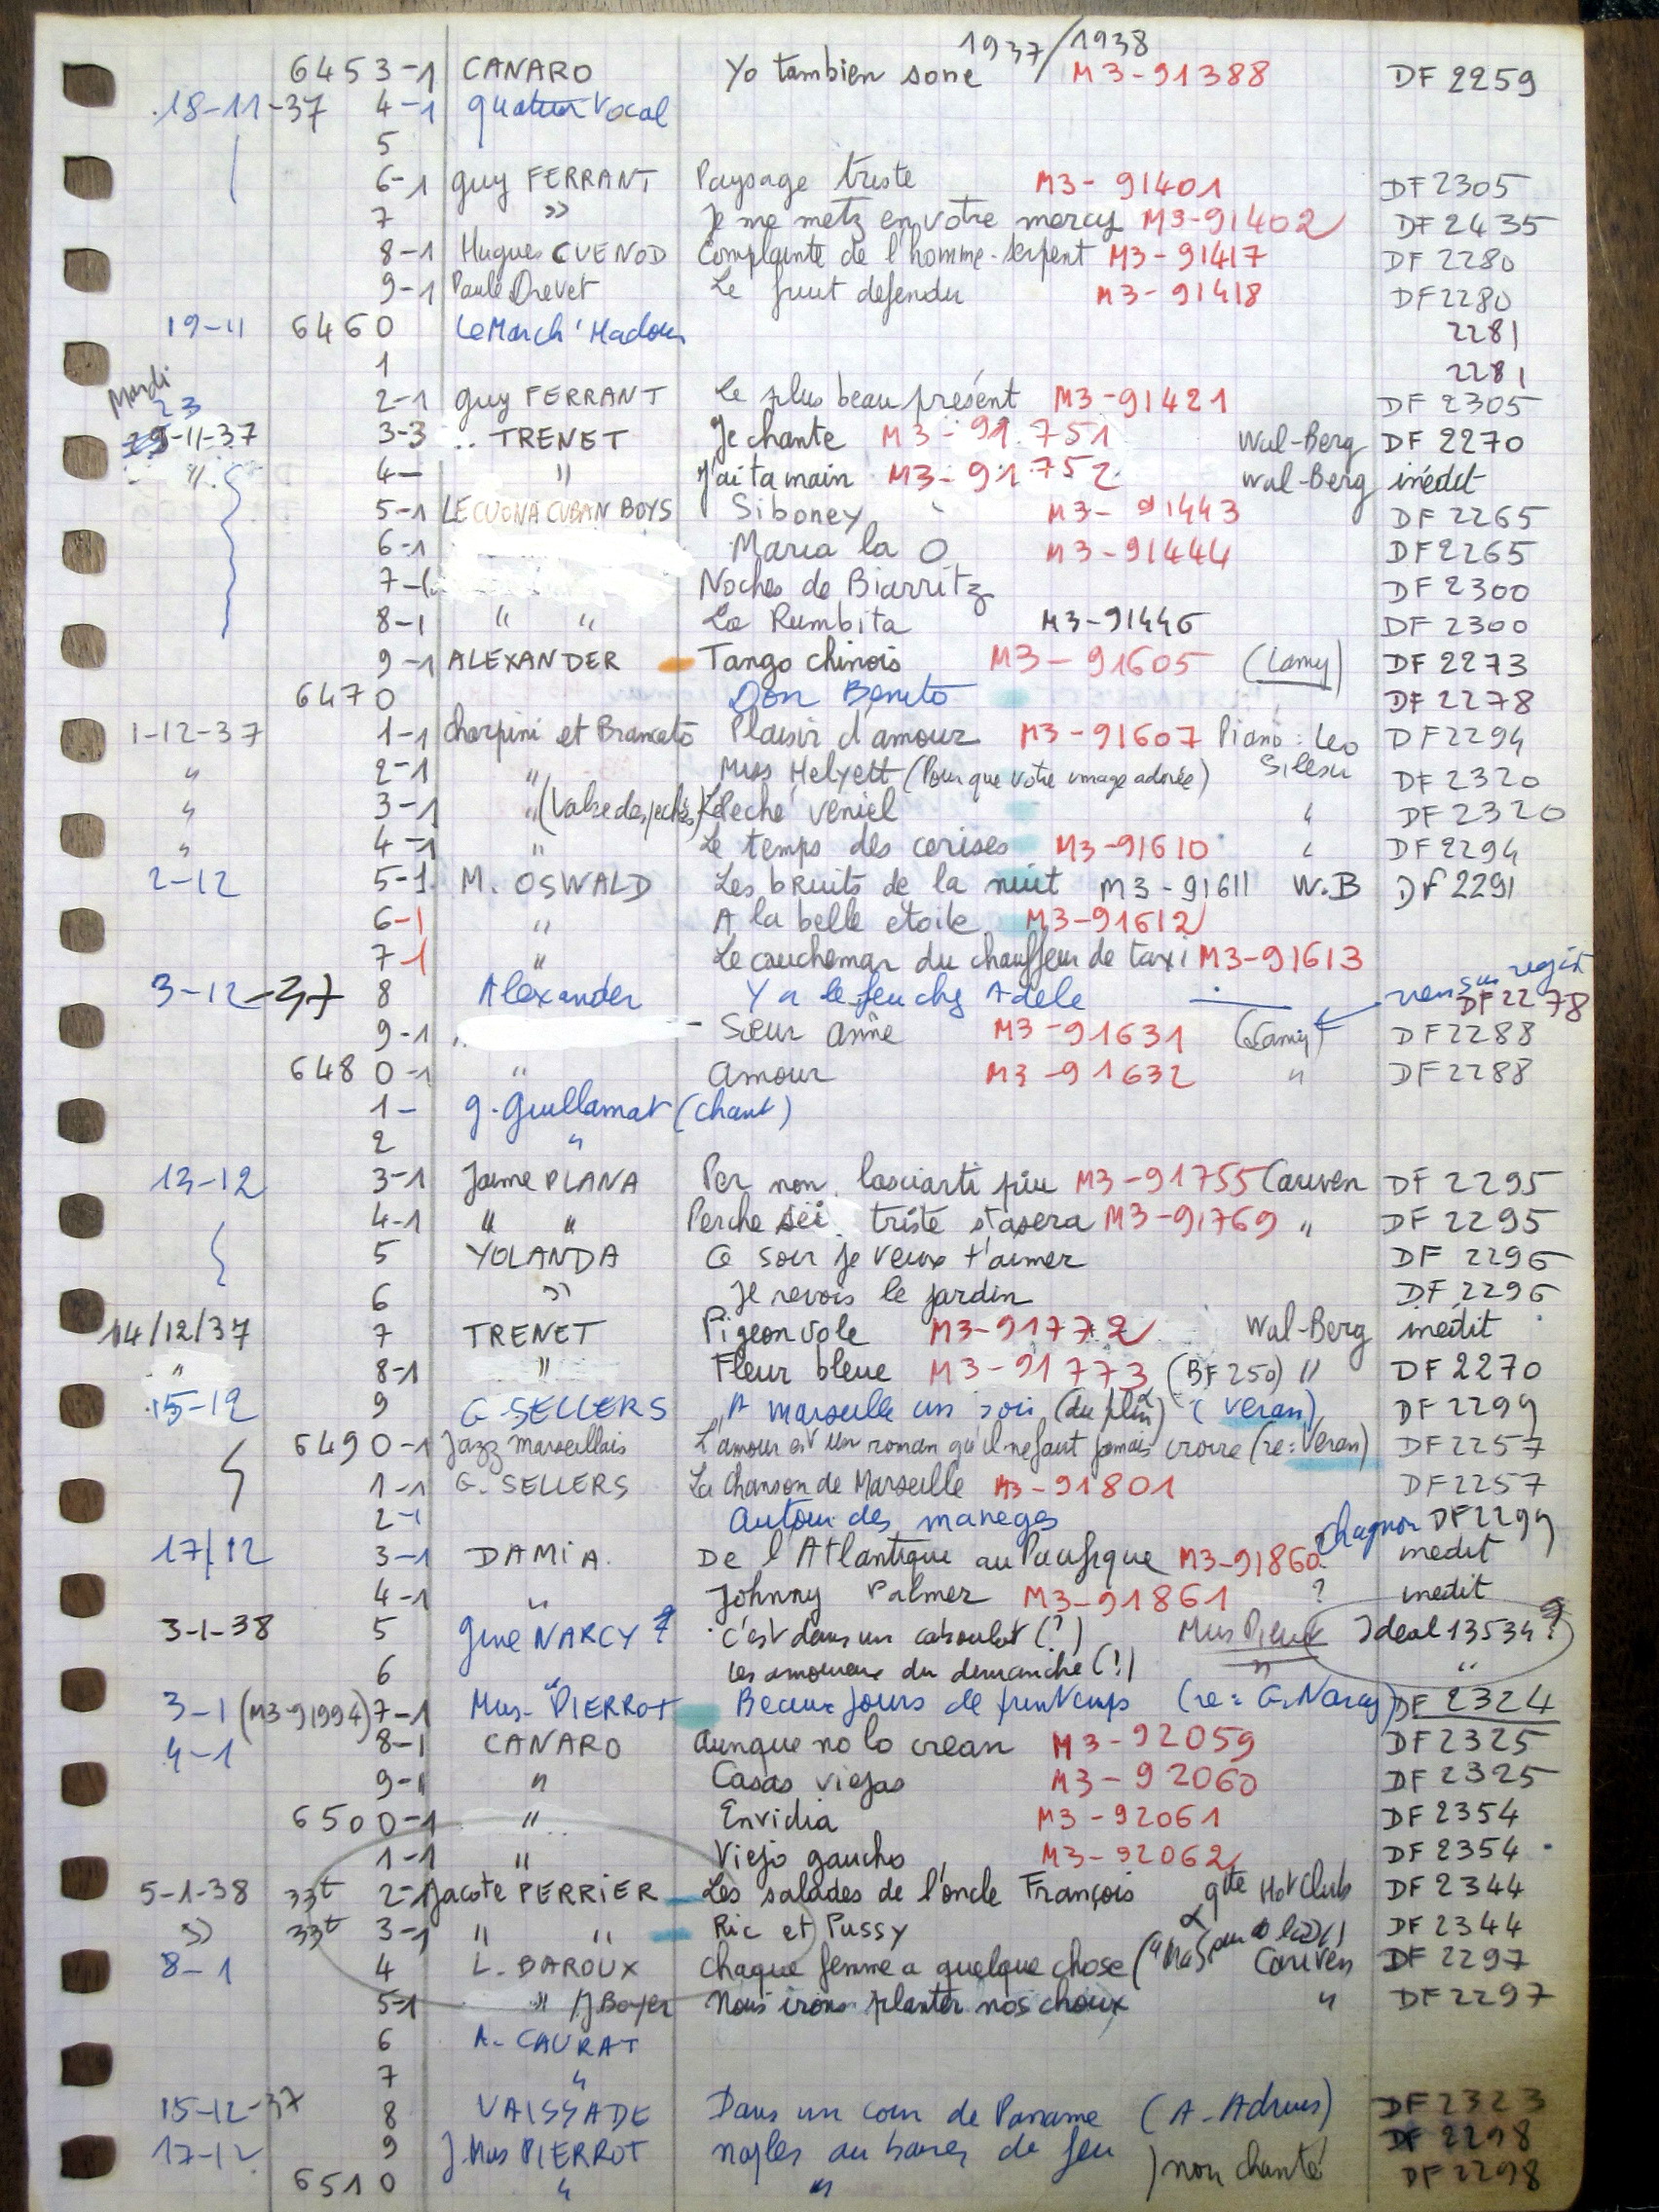 1937/1938
6453-1 CANARO Yo tambien soñe M3-91388 DF 2259
18-11-37 4-1 quatuor vocal
5
6-1 guy FERRANT Paysage triste M3-91401 DF 2305
7 " Je me metz en votre mercy M3-91402 DF 2435
8-1 Hugues CUENOD Complainte de l'homme-serpent M3-91417 DF 2280
9-1 Paule Drevet Le fruit defendu M3-91418 DF 2280
19-11 6460 Le March' Hadour 2281
1 2281
Mardi
2-1 guy FERRANT Le plus beau présent M3-91421 DF 2305
23-11-37 3-3 TRENET Je chante M3-91.751 Wal-Berg DF 2270
" 4- " J'ai ta main M3-91.752 Wal-Berg inédit
5-1 LECUONA CUBAN BOYS Siboney M3-91443 DF 2265
6-1 Maria la O M3-91444 DF 2265
7-1 Noches de Biarritz DF 2300
8-1 " " La Rumbita M3-91446 DF 2300
9-1 ALEXANDER Tango chinois M3-91605 (Lamy) DF 2273
6470 Don Benito DF 2278
1-12-37 1-1 Charpini et Brancato Plaisir d'amour M3-91607 Piano : Leo DF 2294
" 2-1 " Miss Helyett (Pour que votre image adorée) Silesu DF 2320
" 3-1 " (Valse des pechés) Peché veniel " DF 2320
" 4-1 " Le temps des cerises M3-91610 " DF 2294
2-12 5-1 M. OSWALD Les bruits de la nuit M3-91611 W.B DF 2291
6-1 " A la belle etoile M3-91612
7-1 " Le cauchemar du chauffeur de taxi M3-91613
3-12-37 8 Alexander Y a le feu chez Adele rien sur regist DF 2278
9-1 - Sœur anne M3-91631 (Lamy) DF 2288
6480-1 " amour M3-91632 " DF 2288
1- g. Guillamat (chant)
2 "
13-12 3-1 Jaime PLANA Per non lasciarti piu M3-91755 Cariven DF 2295
4-1 " " Perche sei triste stasera M3-91769 " DF 2295
5 YOLANDA Ce soir je veux t'aimer DF 2296
6 " Je revois le jardin DF 2296
14/12/37 7 TRENET Pigeon vole M3-91772 Wal-Berg inédit
" 8-1 " Fleur bleue M3-91773 (BF 250) " DF 2270
15-12 9 G. SELLERS A Marseille un soir (du film) (Veran) DF 2299
6490-1 Jazz marseillais L'amour est un roman qu'il ne faut jamais croire (re: Veran) DF 2257
1-1 G. SELLERS La chanson de Marseille M3-91801 DF 2257
2-1 Autour des maneges DF 2299
17/12 3-1 DAMIA. De l'Atlantique au Pacifique M3-91860 chagnon inedit
4-1 " Johnny Palmer M3-91861 ? inedit
3-1-38 5 gine NARCY ? c'est dans un caboulot (?) Mus Pierrot Ideal 13534 ?
6 les amoureux du dimanche (!) " "
3-1 (M3-91994) 7-1 Mus- PIERROT Beaux jours de printemps (re: G. Narcy) DF 2324
4-1 8-1 CANARO Aunque no lo crean M3-92059 DF 2325
9-1 " Casas viejas M3-92060 DF 2325
6500-1 " Envidia M3-92061 DF 2354
1-1 " Viejo gaucho M3-92062 DF 2354
5-1-38 33t 2-1 Jacote PERRIER Les salades de l'oncle François qtte Hot Club DF 2344
" 33t 3-1 " " Ric et Pussy DF 2344
8-1 4 L. BAROUX Chaque femme a quelque chose Cariven DF 2297
5-1 " / J Boyer Nous irons planter nos choux " DF 2297
6 A. CAURAT
7 "
15-12-37 8 VAISSADE Dans un coin de Paname (A-Adrius) DF 2323
17-12 9 J. Mus PIERROT naples au baiser de feu ) non chanté DF 2298
6510 " " DF 2298